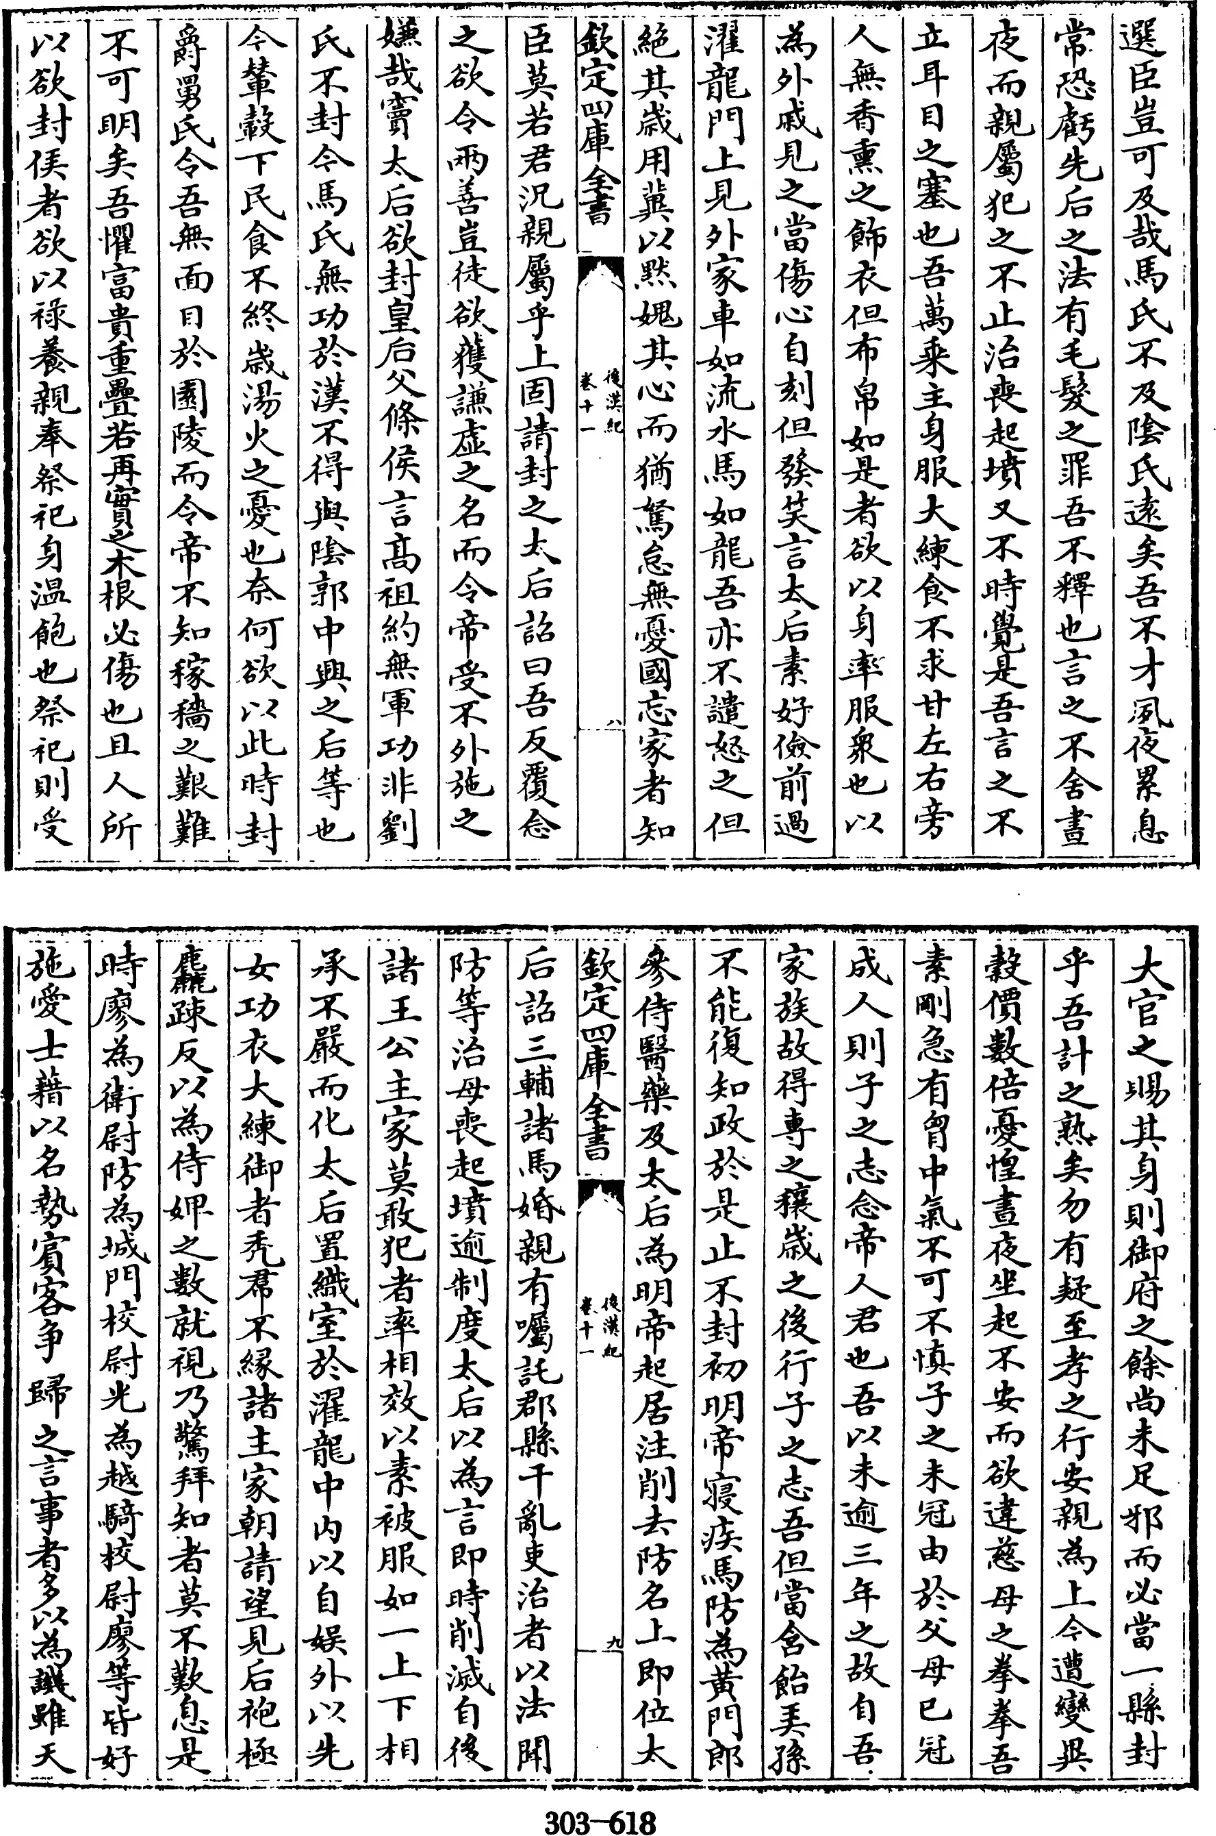 選臣豈可及哉馬氏不及陰氏遠矣吾不才夙夜累息
常恐虧先后之法有毛髮之罪吾不釋也言之不舍晝
夜而親屬犯之不止治喪起墳又不時覺是吾言之不
立耳目之塞也吾萬乘主身服大練食不求甘左右旁
人無香熏之飾衣但布帛如是者欲以身率服衆也以
為外戚見之當傷心自刻但發笑言太后素好儉前過
濯龍門上見外家車如流水馬如龍吾亦不譴怒之但
絶其歲用冀以黙媿其心而猶駑怠無憂國忘家者知
欽定四庫全書
後漢紀
卷十一
八
臣莫若君況親屬乎上固請封之太后詔曰吾反覆念
之欲令兩善豈徒欲獲謙虛之名而令帝受不外施之
嫌哉竇太后欲封皇后父條侯言高祖約無軍功非劉
氏不封今馬氏無功於漢不得與陰郭中興之后等也
今輦轂下民食不終歲湯火之憂也奈何欲以此時封
爵舅氏令吾無面目於園陵而令帝不知稼穡之艱難
不可明矣吾懼富貴重疊若再實之木根必傷也且人所
以欲封侯者欲以祿養親奉祭祀身溫飽也祭祀則受
大官之賜其身則御府之餘尚未足邪而必當一縣封
乎吾計之熟矣勿有疑至孝之行安親為上今遭變異
穀價數倍憂惶晝夜坐起不安而欲違慈母之拳拳吾
素剛急有胷中氣不可不慎子之未冠由於父母已冠
成人則子之志念帝人君也吾以未逾三年之故自吾
家族故得專之穰歲之後行子之志吾但當含飴弄孫
不能復知政於是止不封初明帝寢疾馬防為黃門郎
參侍醫藥及太后為明帝起居注削去防名上即位太
欽定四庫全書
後漢紀
卷十一
九
后詔三輔諸馬婚親有囑託郡縣干亂吏治者以法聞
防等治母喪起墳逾制度太后以為言即時削滅自後
諸王公主家莫敢犯者率相效以素被服如一上下相
承不嚴而化太后置織室於濯龍中內以自娛外以先
女功衣大練御者禿帬不緣諸主家朝請望見后袍極
麤疎反以為侍婢之數就視乃驚拜知者莫不歎息是
時廖為衛尉防為城門校尉光為越騎校尉廖等皆好
施愛士藉以名勢賓客爭歸之言事者多以為譏雖天
303-618